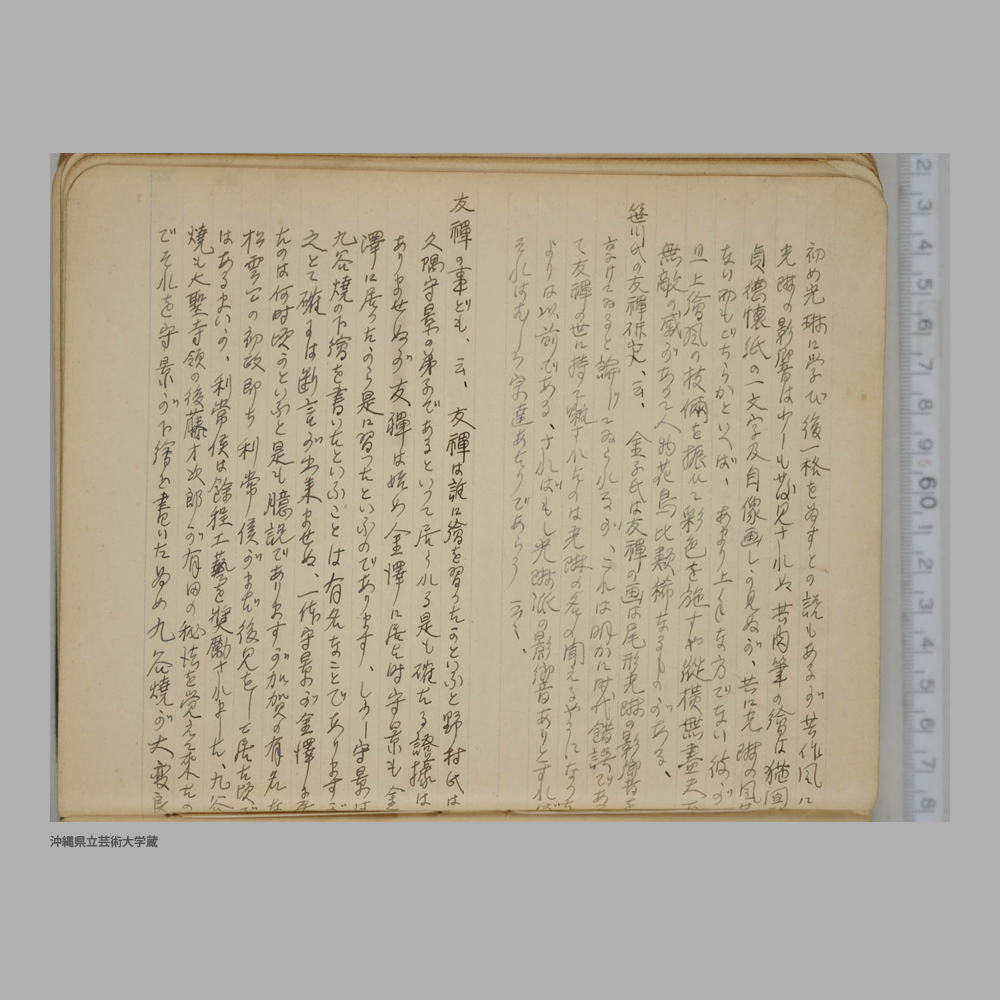 初め光琳に学び後一格を為すとの説もあるが其作風に
光琳の影響は少しも發見されぬ 其肉筆の繪は猫図
貞德懐紙の一文字及自像画しか見ぬが、共に光琳の風は
ない而もどちらかといへば、あまり上手な方でない彼が
旦上繪風の技倆を振れて彩色を施すや縱横無盡天下
無敵の威があつて人物花鳥比類稀なるものがある、
笹川氏の友禪 云、 金子氏は友禪の画は尾形光琳の影響を
享けてゐると論じてゐられるが、これは明かに時代錯誤であ
て友禪の世に持て囃されたのは光琳の名の聞えるやうになつた
よりは以前である、さればもし光琳派の影響ありとすれば
それはむしろ宗達あたりであらう 云々、
友禪の事ども、云、 友禪は誰に繪を習つたかといふと野村氏は
久隅守景の弟子であるといつて居られる是も確たる證據は
ありませぬが友禪は始め金澤に居た時守景も金
澤に居つたから是に習つたといふのであります、しかし守景は
九谷燒の下繪を書いたといふことは有名なことでありますが
之とて確には断言が出来ませぬ、一体守景が金澤に
たのは何時頃かといふと是も臆説でありますが加賀の有名な
松雲公の初政即ち利常侯がまだ後見をして居た頃で
はあるまいか、利常侯は餘程工藝を奬勵されました、九谷
燒も大聖寺領の後藤才次郎が有田の秘法を覚えて来たの
でそれを守景が下繪を書いたゐめ九谷燒が大変良
2 3 4 5 6 7 8 9 60 1 2 3 4 5 6 7 8
沖縄県立芸術大学蔵